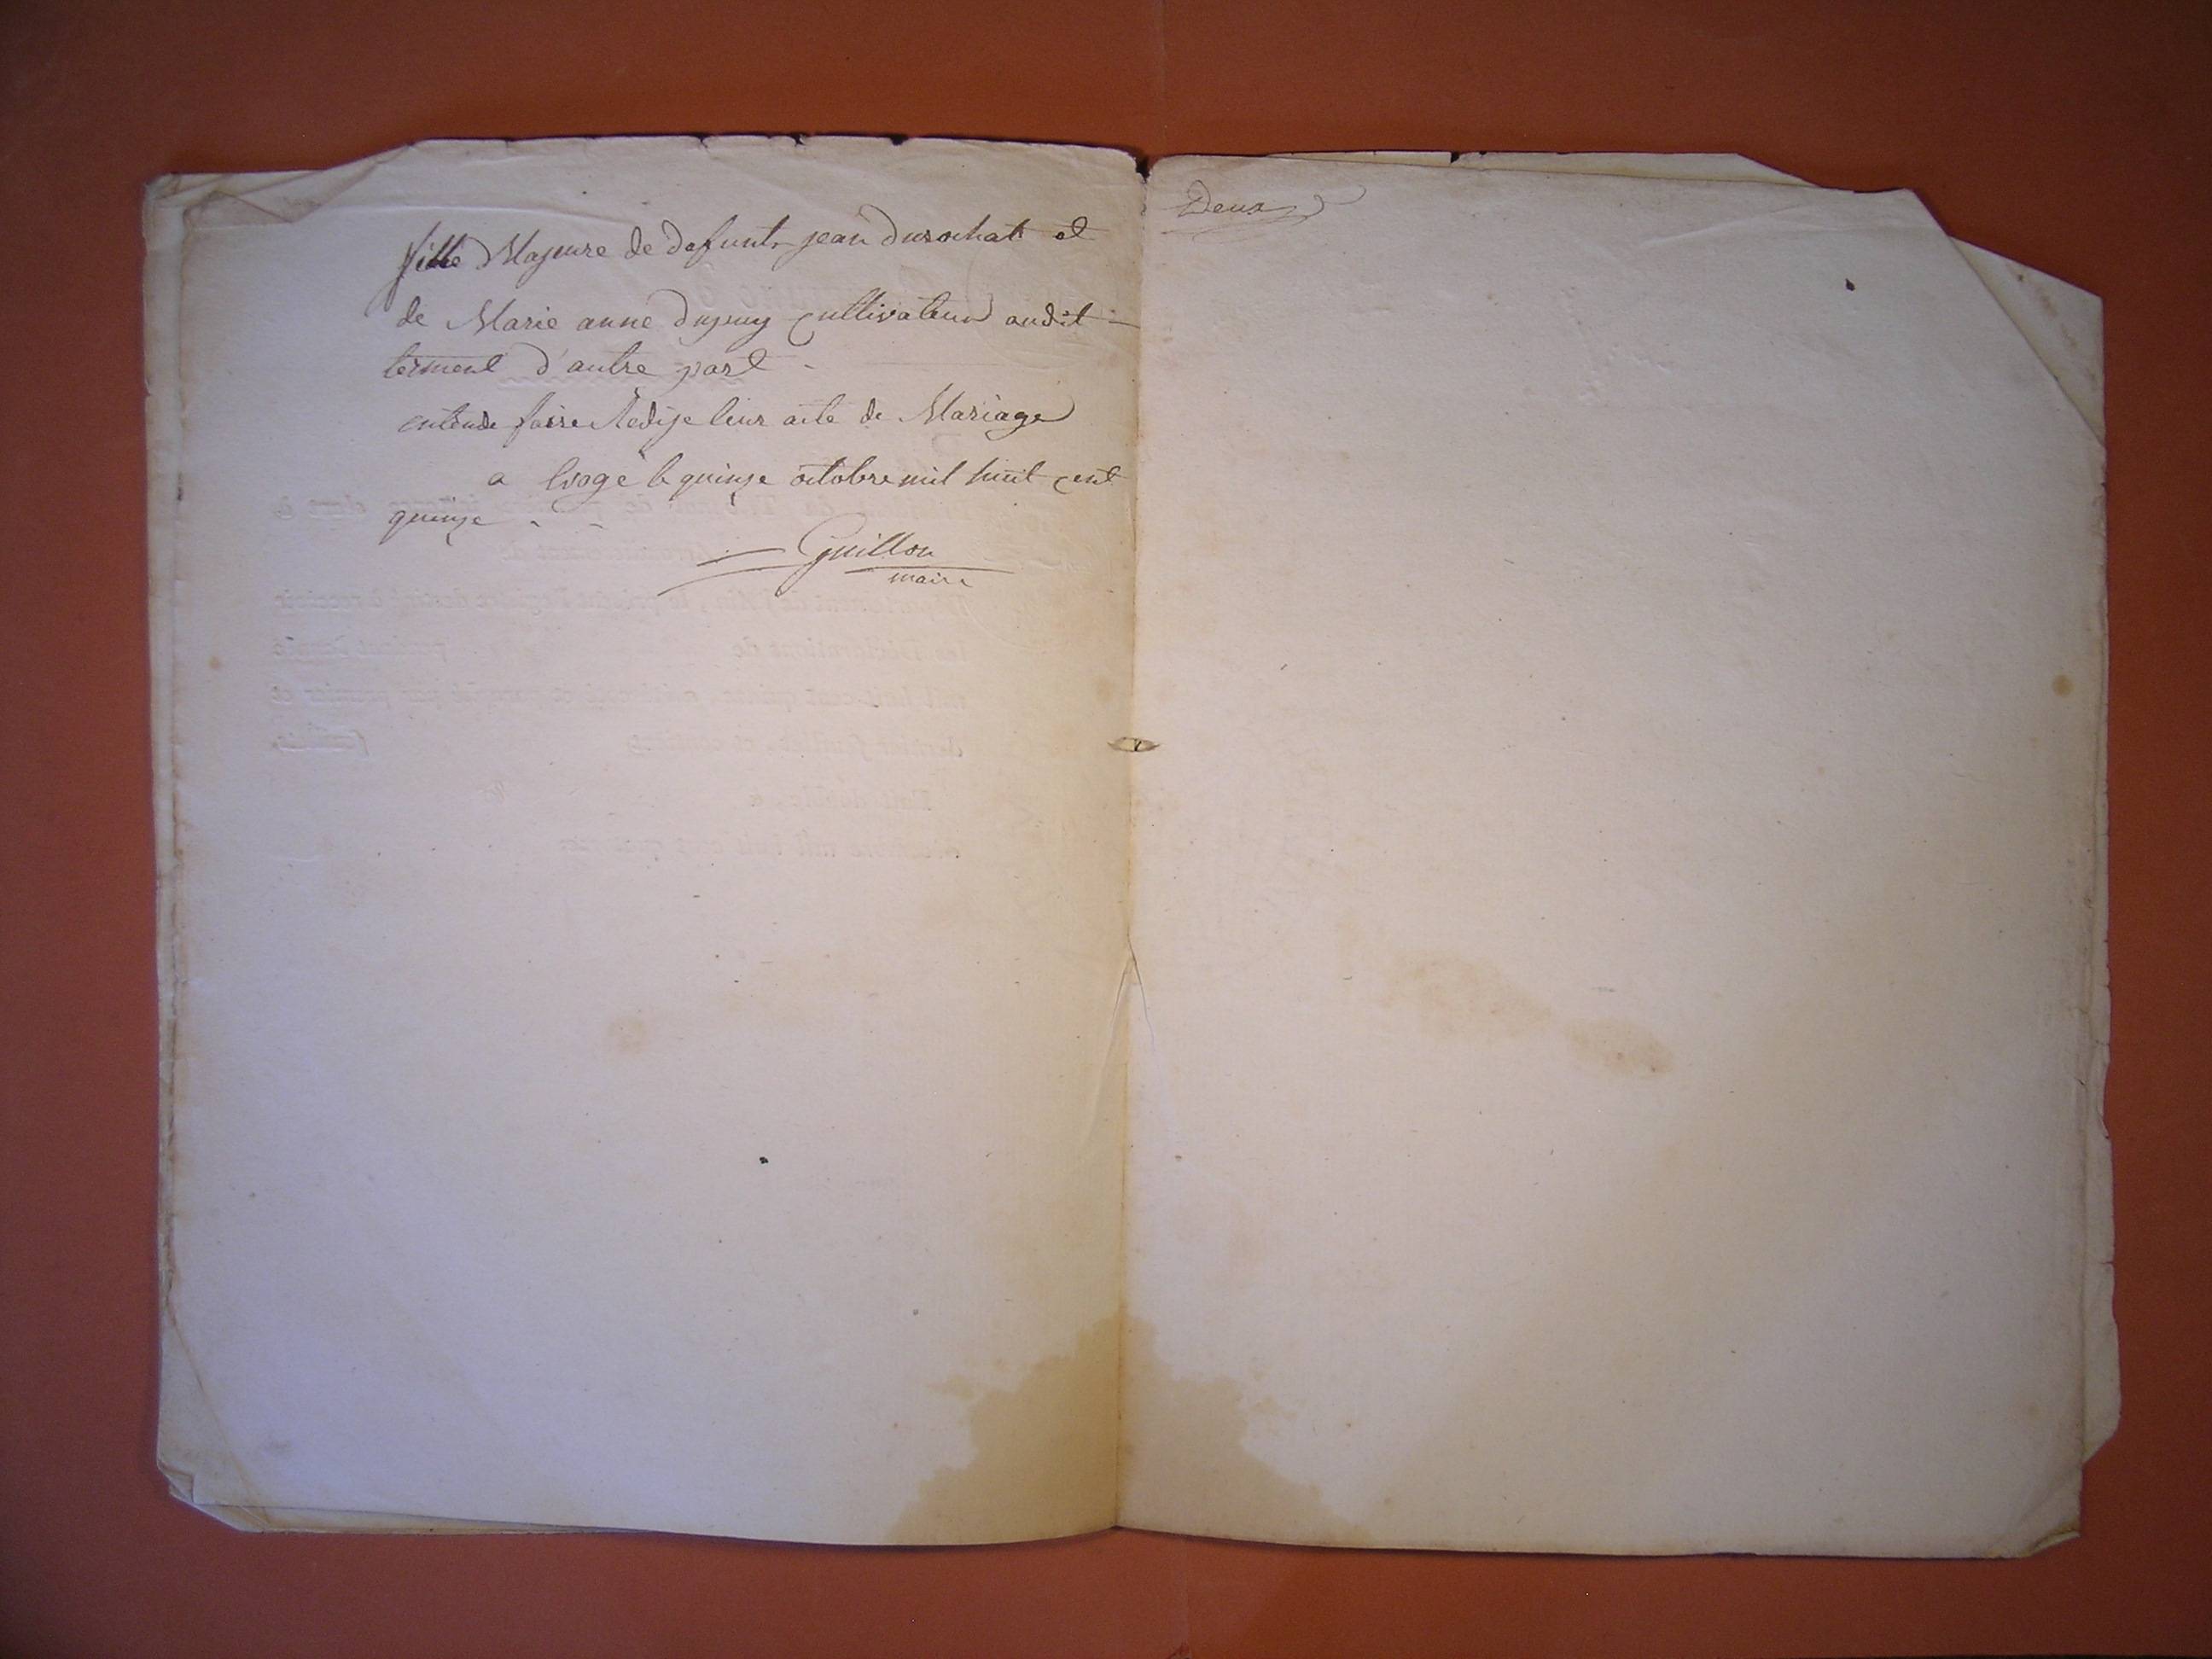 fille Majeure de defunt jean Durochat et
de Marie anne dupuy cultivateur audit
terment d'autre part
entende faire Redije leur acte de Mariage
a Evoge le quinze octobre mil huit cent
quinze
Guillon
maire
Deux